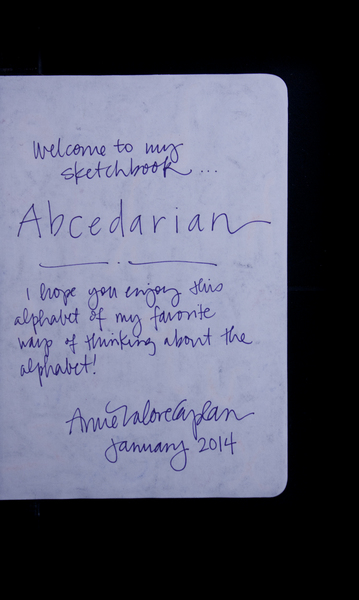 Welcome to my
sketchbook...
Abcedarian
I hope you enjoy this
alphabet of my favorite
ways of thinking about the
alphabet!
Annie
January 2014